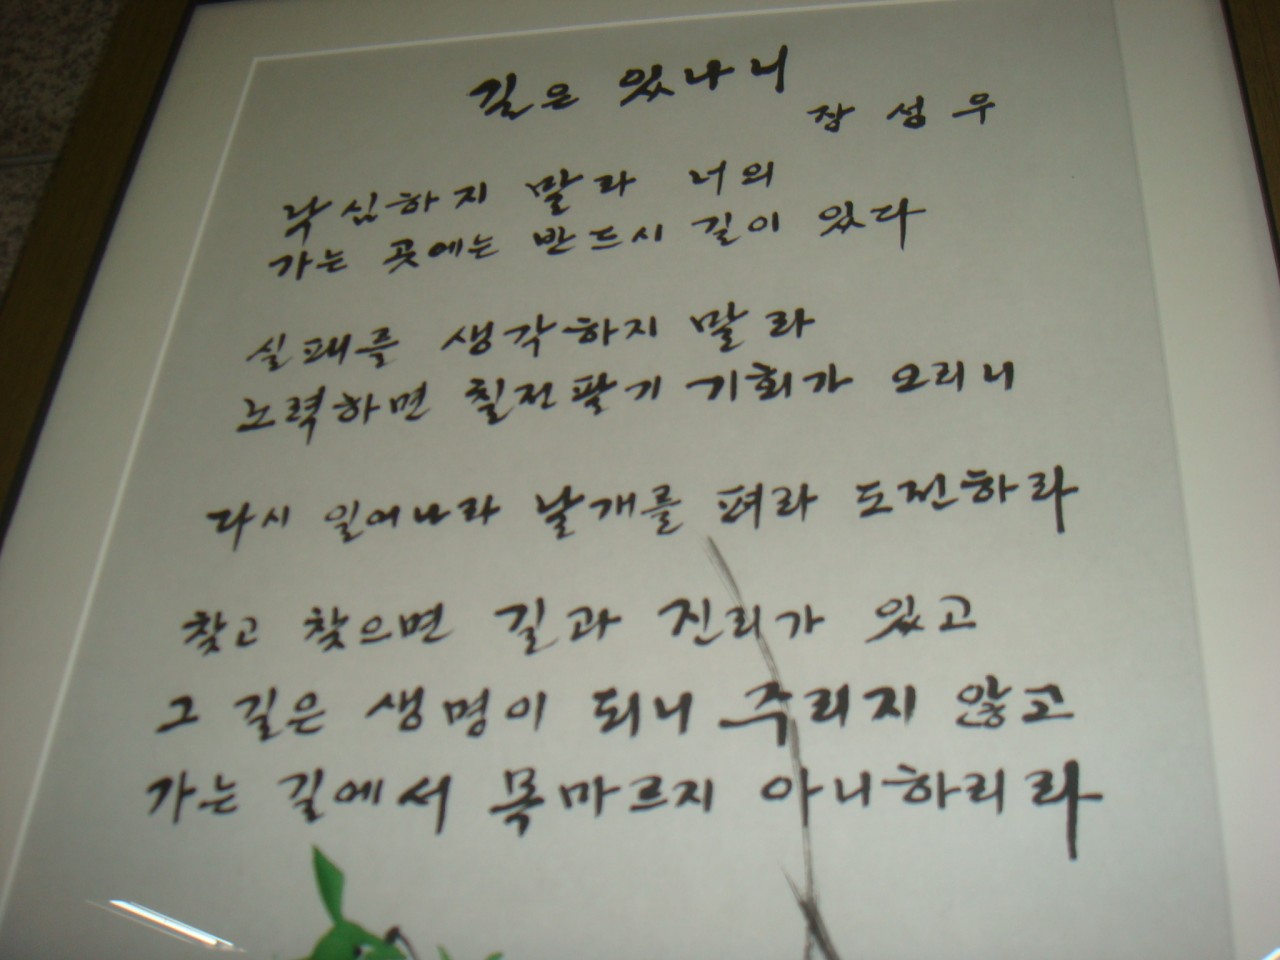 길은 있나니
장성우
낙심하지 말라 너의
가는 곳에는 반드시 길이 있다
실패를 생각하지 말라
노력하면 칠전팔기 기회가 오리니
다시 일어나라 날개를 펴라 도전하라
찾고 찾으면 길과 진리가 있고
그 길은 생명이 되니 주리지 않고
가는 길에서 목마르지 아니하리라